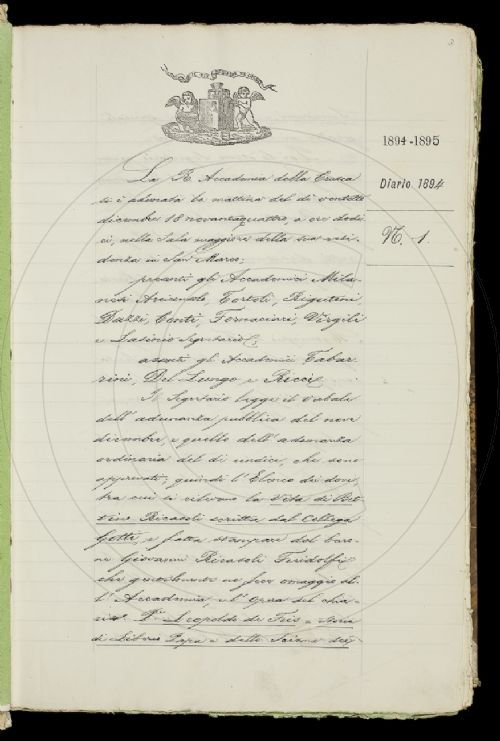 3
1894-1895
Diario 1894
N. 1.
La R. Accademia della Crusca
si è adunata la mattina del dì ventotto
dicembre 18 novantaquattro, a ore dodi
ci, nella Sala maggiore della sua resi-
denza in San Marco;
presenti gli Accademici Mila-
nesi Arciconsolo, Tortoli, Rigutini,
Dazzi, Conti, Fornaciari, Virgili
e Segretario;
assenti gli Accademici Tabar-
rini, Del Lungo e Ricci.
Il Segretario legge il Verbale
dell'adunanza pubblica del nove
dicembre, e quello dell'adunanza
ordinaria del dì undici, che sono
approvati; quindi l'Elenco dei doni,
tra cui si rilevano la Vita di Bet-
tino Ricasoli scritta dal Collega
Gotti, e fatta stampare dal baro-
ne Giovanni Ricasoli Firidolfi,
che ne fece omaggio al-
l'Accademia, e l'Opera del chia-
P. Leopoldo de Feis - Storia
di Liberio Papa e dello Scisma dei